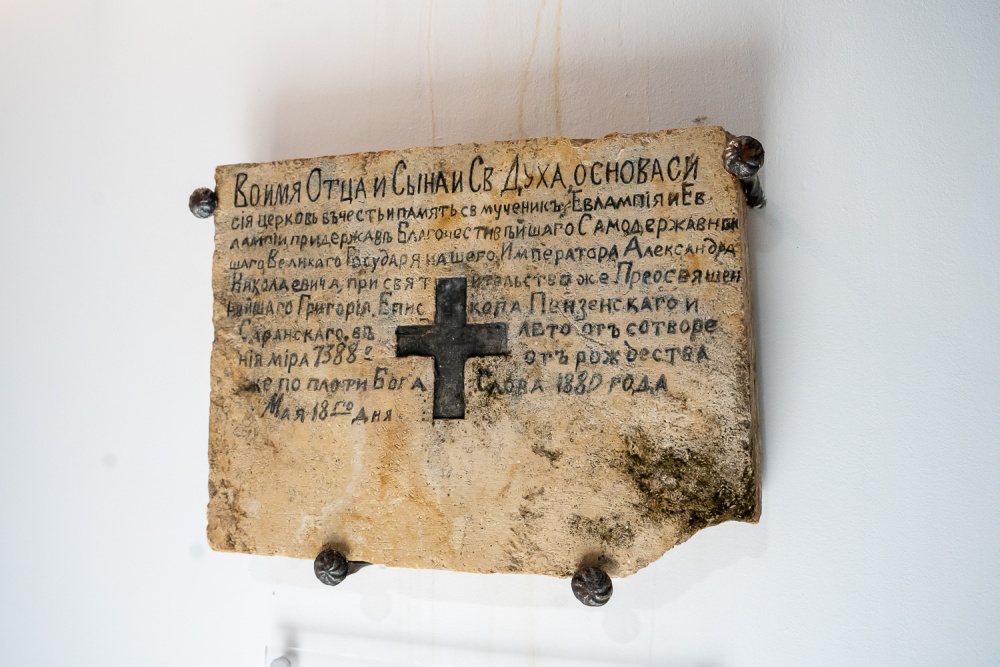 Во имя Отца и Сына и Св Духа, основаси
сія церковь въ честь и память св мученикъ Евлампія и Ев
лампіи при державѣ Благочестивѣйшаго Самодержавнѣй
шаго Великаго Государя нашего, Императора Александра
Николаевича, при святительстве же Преосвящен
нѣйшаго Григорія, Епископа Пензенскаго и
Саранскаго, въ лѣто отъ сотворе
нія міра 7388е отъ рождества
же по плоти Бога Слова 1880 года
Мая 18го дня